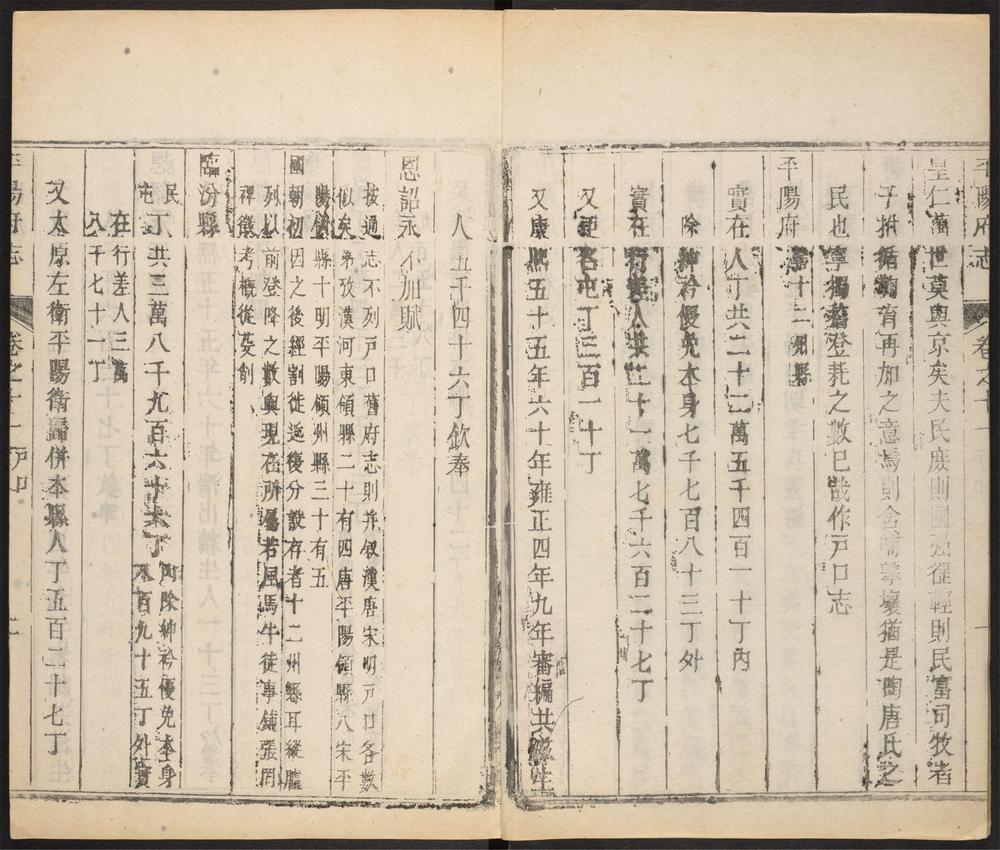 平陽府志 卷之十一
皇仁萬世莫與京矣夫民庶則國強徭輕則民富司牧者
于拊循教育再加之意焉則含哺擊壤猶是陶唐氏之
民也寧獨登耗之數已哉作戸口志
平陽府 十二州縣
實在人丁共二十二萬五千四百一十丁內
除紳衿優免本身七千七百八十三丁外
實在行差人共二十一萬七千六百二十七丁
又更名屯丁三百一十丁
又康熙五十五年六十年雍正四年九年審編共滋生
人丁五千四十六丁欽奉
恩詔永不加賦
按通志不列戸口舊府志則并叙漢唐宋明戸口各數
似矣第攷漢河東領縣二十有四唐平陽領縣八宋平
陽領縣十明平陽領州縣三十有五
國朝初因之後經割徙返復分設存者十二州縣耳縱臚
列以前登降之數與現在所屬若風馬牛徒事鋪張罔
禆徵考概從芟削
臨汾縣
民屯丁共三萬八千九百六十六丁內除紳衿優免本身
八百九十五丁外實
在行差人三萬
八千七十一丁
又太原左衛平陽衛歸併本縣人丁五百二十七丁
平陽府志 卷之十一 戸口 二